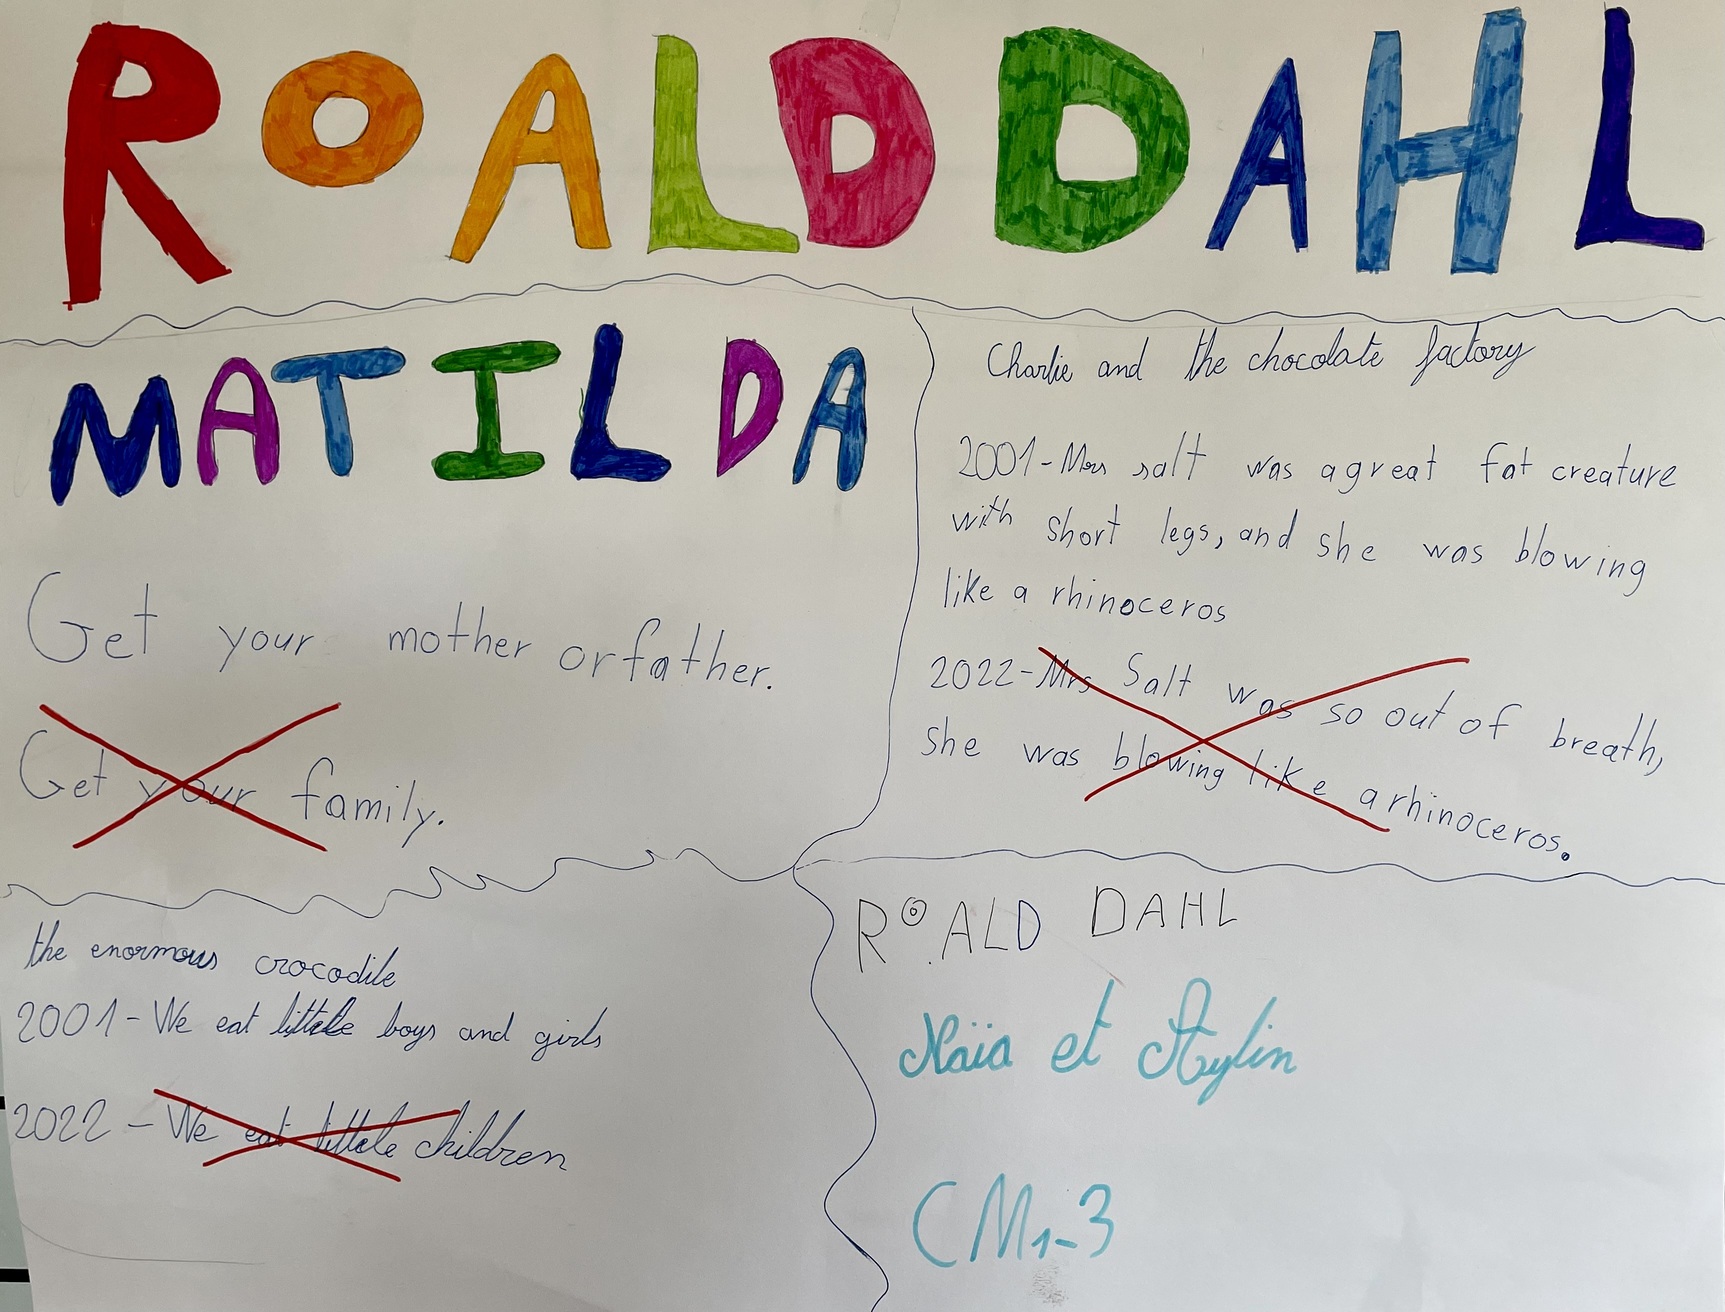 ROALD DAHL
MATILDA
Get your mother or father.
Get your family.
Charlie and the chocolate factory
2001-Mrs salt was a great fat creature
with short legs, and she was blowing
like a rhinoceros
2022-Mrs Salt was so out of breath,
she was blowing like a rhinoceros.
the enormous crocodile
2001-We eat little boys and girls
2022-We eat little children
ROALD DAHL
Naïa et Aylin
CM1-3